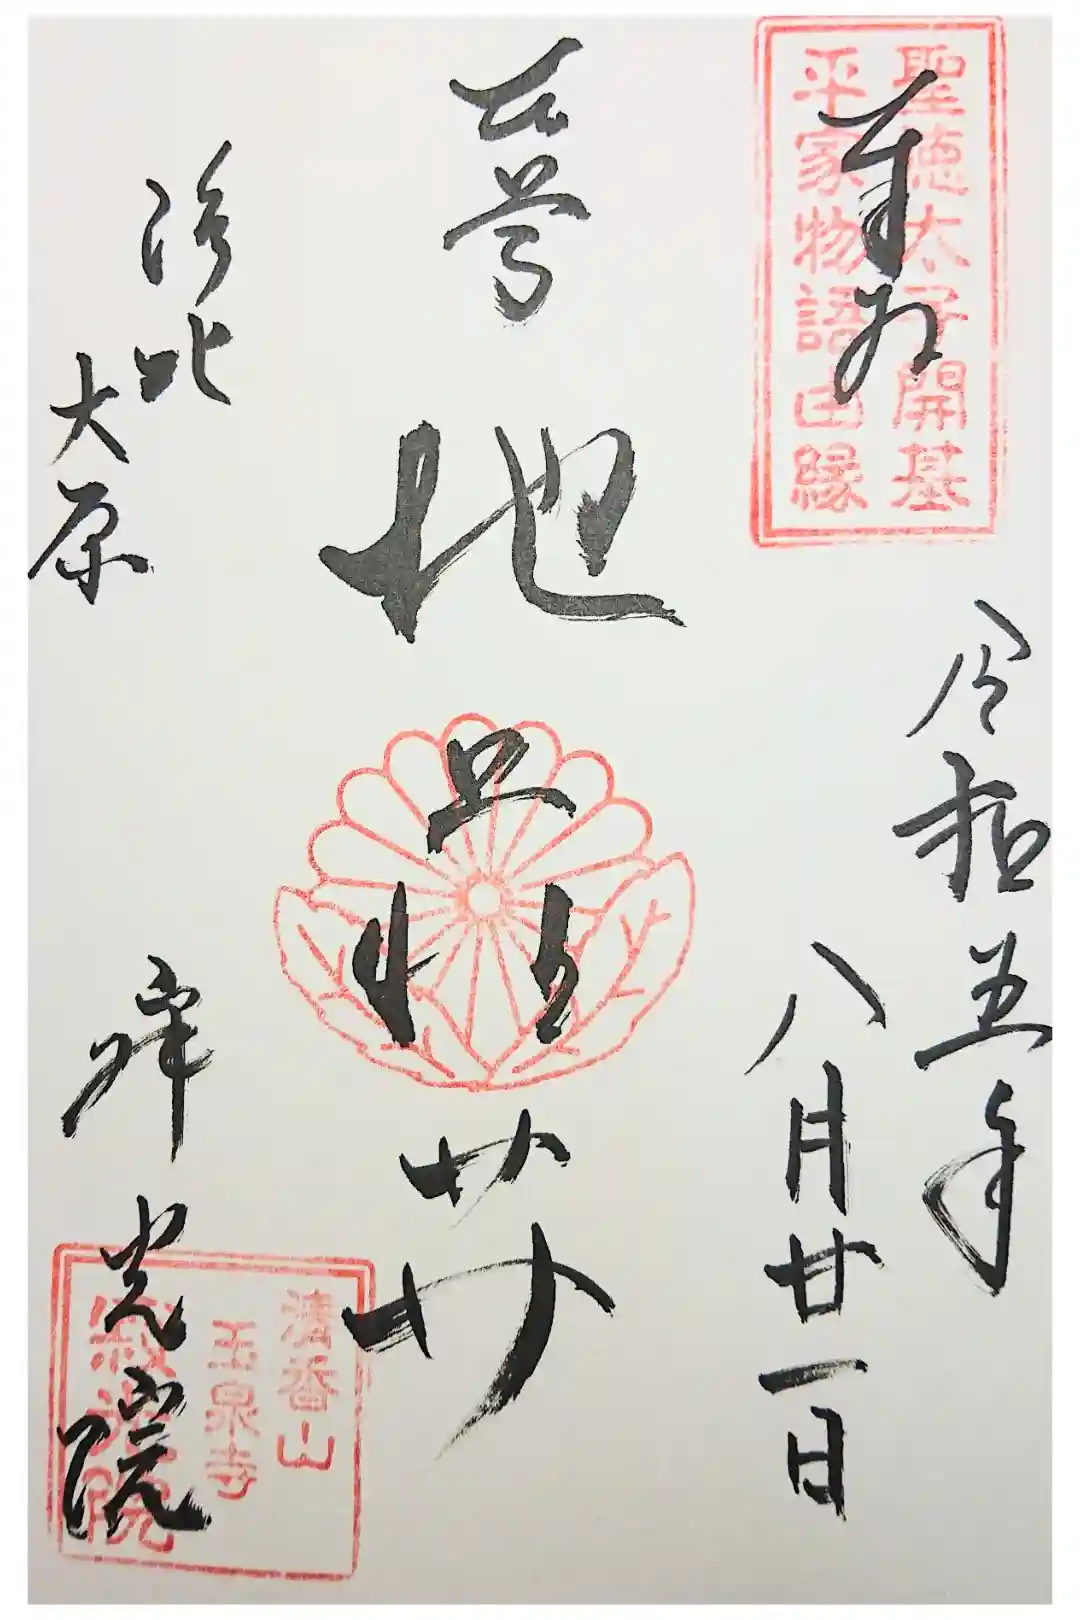 聖徳太子開基
平家物語由縁
奉拝
令和五年
八月廿一日
地
洛北
大原
寂光院
清香山
玉泉寺
寂光院